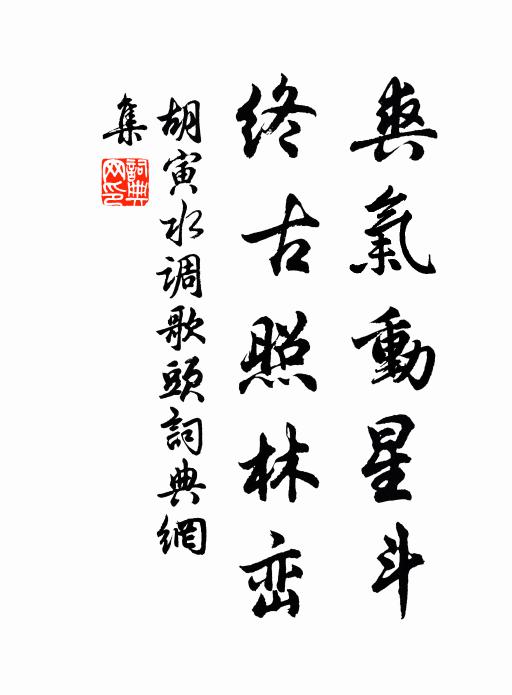 爽氣動星斗
終古照林峦
胡寅水调歌頭詞典網
集
詞典網印